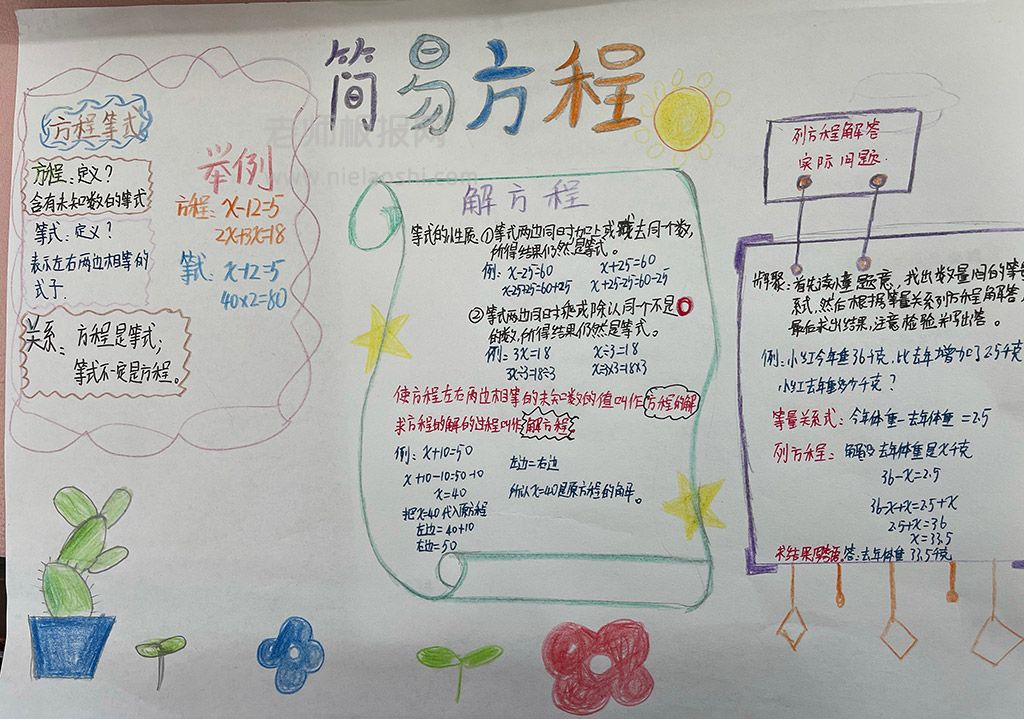 简易方程
老师板报网
www.nielaoshi.com
方程等式
方程:定义?
含有未知数的等式
等式:定义?
表示左右两边相等的
式子.
关系:方程是等式;
等式不一定是方程。
举例
方程:x-12=5
2x+3x=18
等式:x+2=5
40×2=80
解方程
等式的性质:①等式两边同时加上或减去同一个数,
所得结果仍然是等式。
例:x-25=60 x+25=60
x-25+25=60+25 x+25-25=60-25
②等式两边同时乘或除以同一个不是0
的数,所得结果仍然是等式。
例:3x=18 x÷3=18
3x÷3=18÷3 x÷3×3=18×3
使方程左右两边相等的未知数的值叫作方程的解
求方程的解的过程叫作解方程
例:x+10=50
x+10-10=50-10
x=40
把x=40代入原方程
左边=40+10
右边=50
左边=右边
所以x=40是原方程的解。
列方程解答
实际问题.
步骤:首先读懂题意,找出数量间的等量
系式,然后根据等量关系列方程解答,
最后求出结果,注意检验并写出答。
例:小红今年重36千克,比去年增加了2.5千克
小红去年重多少千克?
等量关系式:今年体重-去年体重=2.5
列方程:解设去年体重是x千克
36-x=2.5
36-x+x=2.5+x
2.5+x=36
x=33.5
求结果写答语 答:去年体重33.5千克